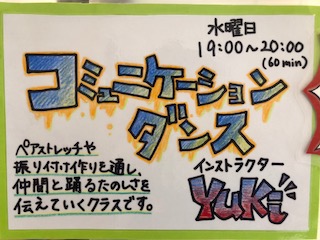 水曜日
19:00～20:00
(60min)
コミュニケーション
ダンス
ペアストレッチや
振り付け作りを通し、
仲間と踊るたのしさを
伝えていくクラスです。
インストラクター
YuKi